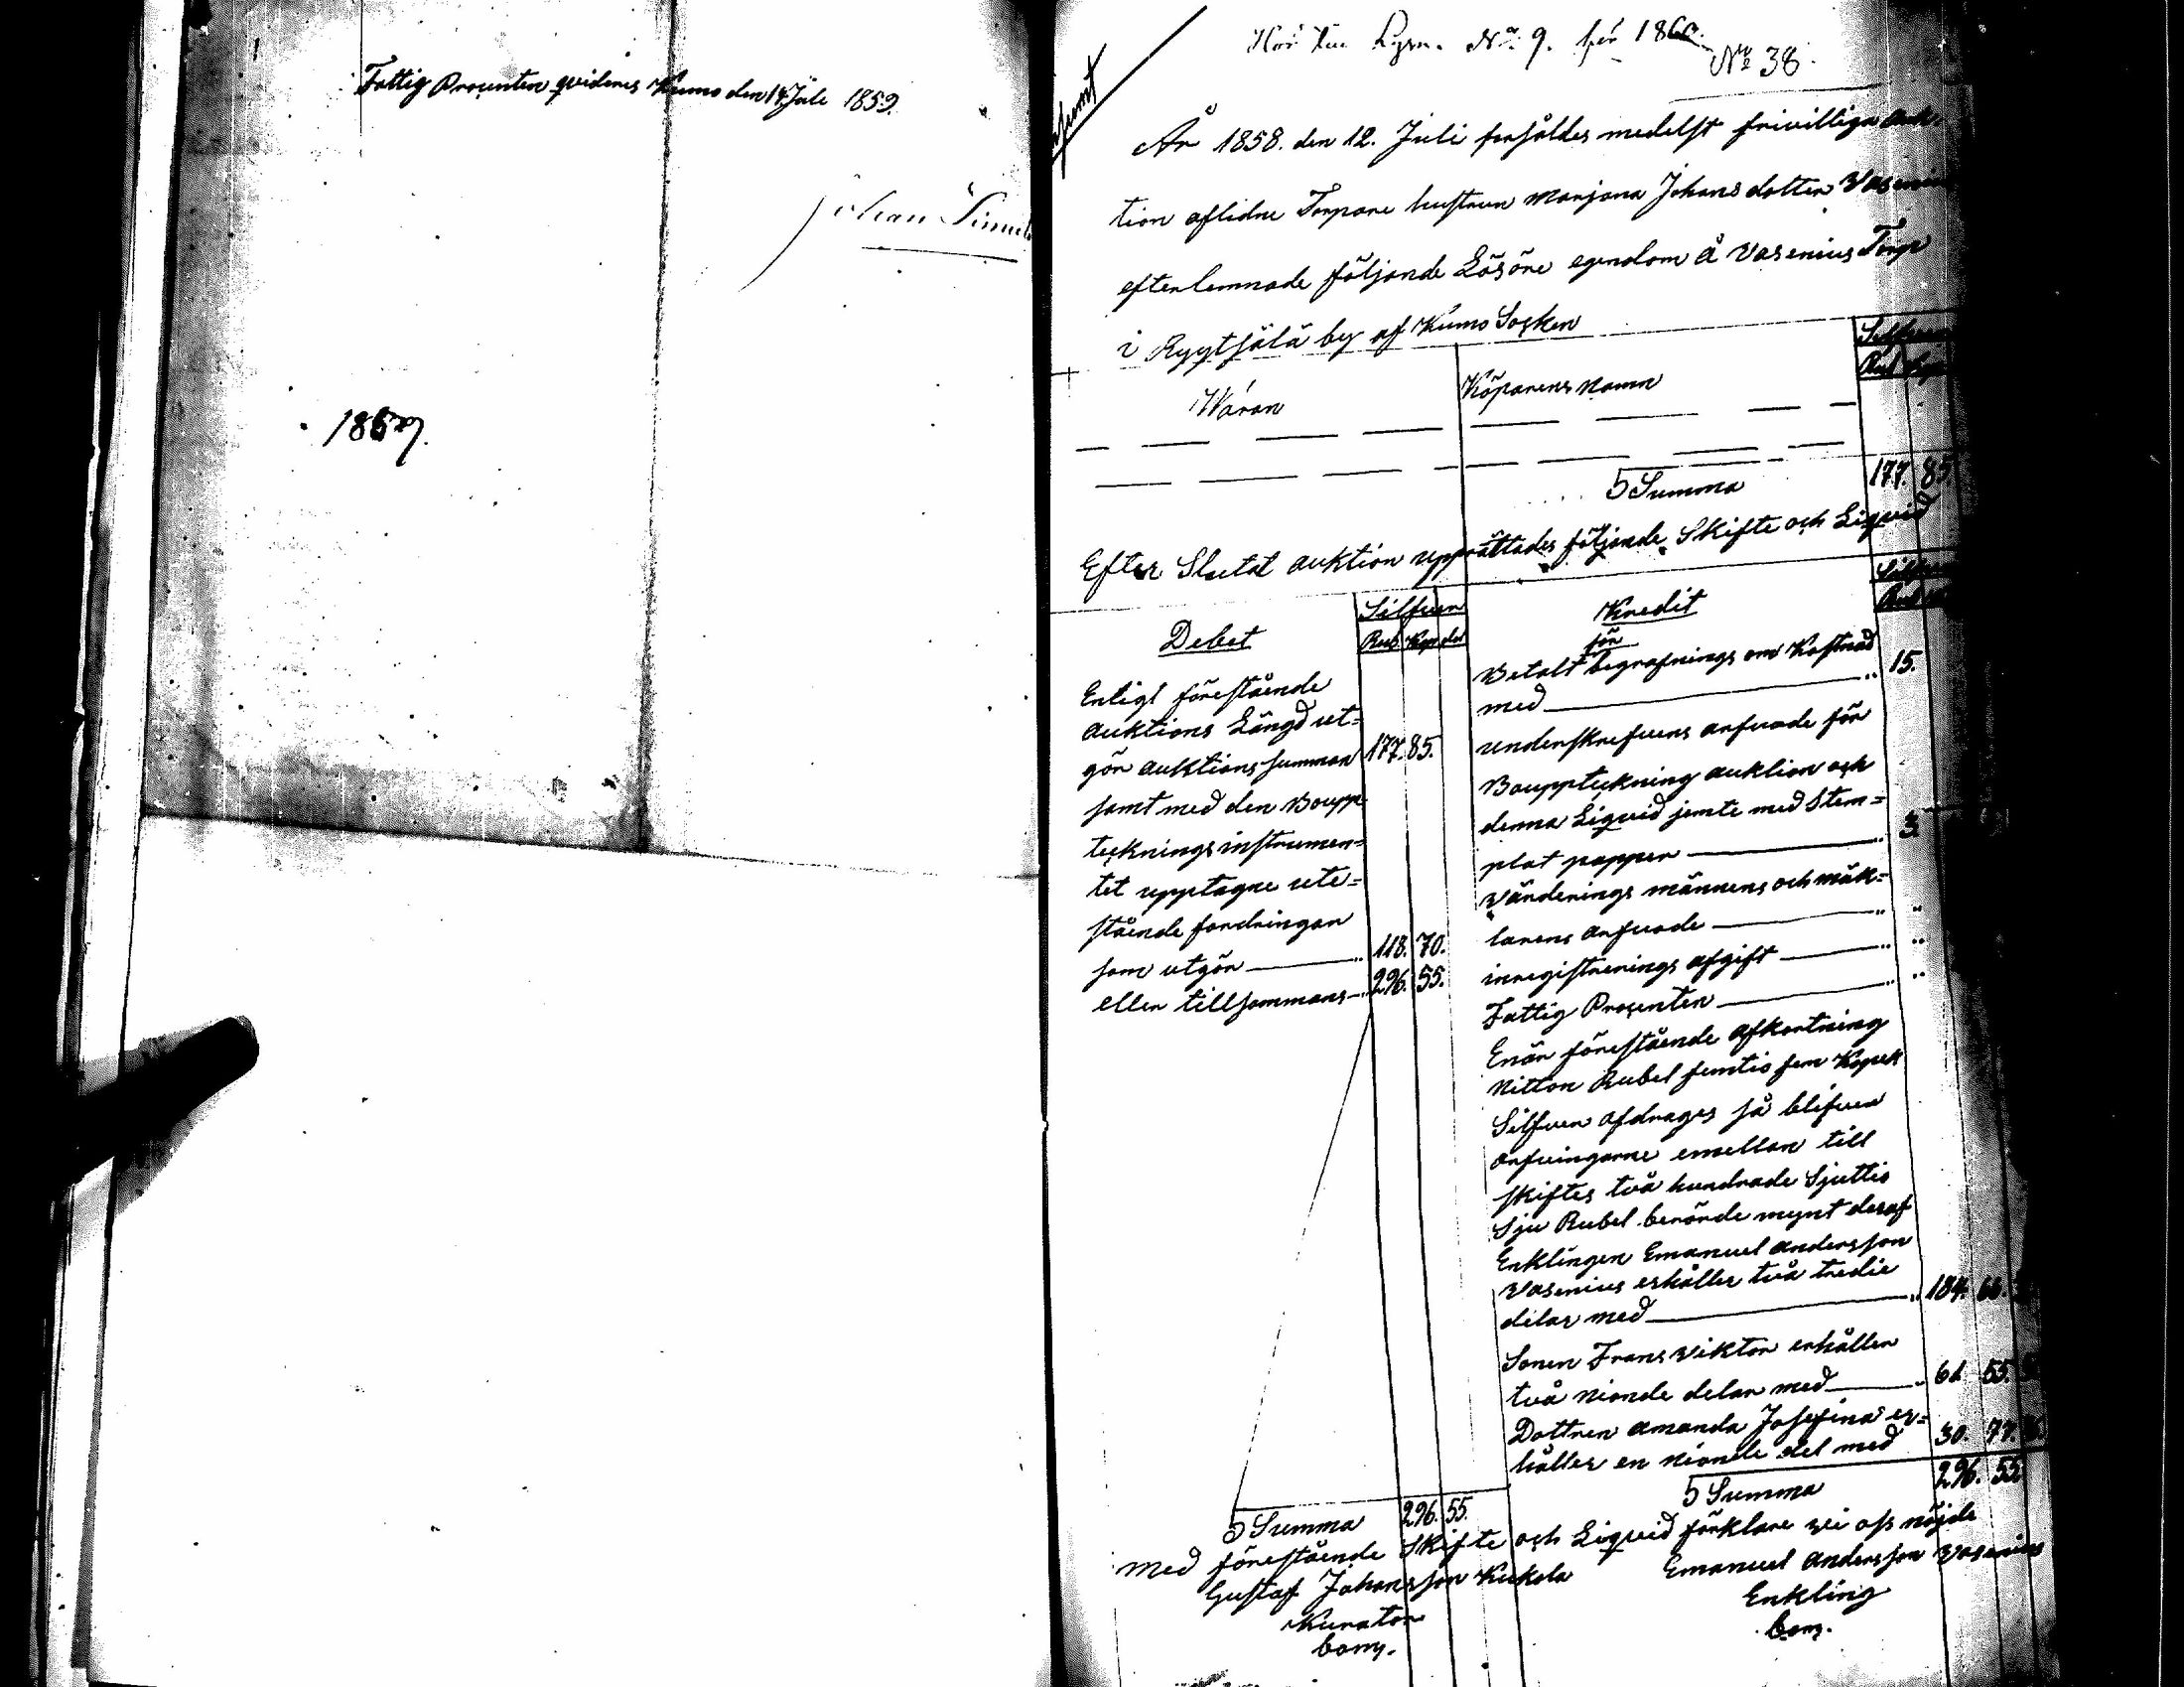 Fattig Procenten qviderres Kumo den 14 Juli 1859.
Johan
1857.
N:o 9. för 1860.
N:o 38.
År 1858. den 12. Juli forsåldes medelst frivilliga auk-
tion aflidne Torpare hustrun Marjana Johans dotter Vasenius
efterlemnade följande Lösöre egendom å Vasenius Torp
i Ryytsälä by af Kumo Socken
Silfver
Rub Kop
Waran
Köparens namn
S Summa 177. 85.
Efter Slutat auktion upprättades följande Skifte och Liqvid
Debet
Silfver
Rub Kop del
Enligt förestående
auktions Längd ut=
gör auktions summan 177. 85.
samt med den Boupp
teknings instrumen=
tet upptagne ute=
stående fordringar
som utgör 118. 70.
eller tillsammans 296. 55.
S Summa 296. 55.
Kredit
Silfver
Betalt för begrafnings om Kostnad
med 15.
underskrefvens arfvode för
Bouppteckning auktion och
denna Liqvid jemte med Stem=
plat papper 3
Värderings männens och mäk=
larens arfvode
inregistrerings afgift
Fattig Procenten
Enär förestående afkortning
Nitton Rubel femtio fem Kopek
Silfver afdrages så blifver
arfvingarne emellan till
skiftes två hundrade Sjuttio
Sju Rubel berörde mynt deraf
Enklingen Emanuel Andersson
Vasenius erhåller två tredie
delar med 184. 66.
Sonen Frans Viktor erhåller
två nionde delar med 61. 55.
Dottren Amanda Josefina er=
håller en nionde del med 30. 77.
S Summa 296. 55
Med förestående Skifte och Liqvid förklare vi oss nöjde
Gustaf Johansson Kukola
Kurator
bom.
Emanuel Andersson Vasenius
Enkling
bom.